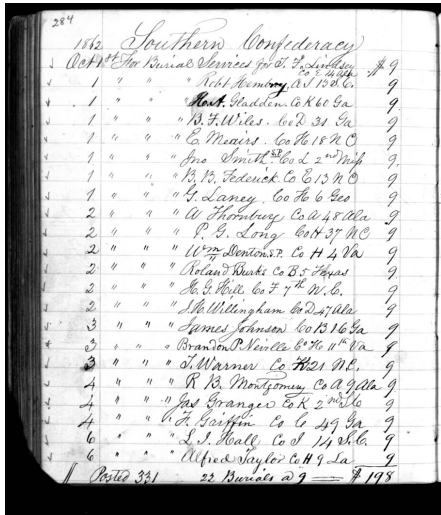 284
1862 Southern Confederacy
Oct 1st For Burial Services for T. F. Lindsey Co E 14 Ala $ 9
1 " " " Robt Hembry, A.I 13 S.C. 9
1 " " " H.A. Gladden. Co K 60 Ga 9
1 " " " B. F. Wiles. Co D 31 Ga 9
1 " " " E. Meairs. Co H 18 N C 9
1 " " " Jno Smith S.P. Co L 2nd Miss 9
1 " " " B. B. Federick Co E 13 N C 9
1 " " " G. Laney. Co H 6 Geo 9
2 " " " A Thornbury Co A 48 Ala 9
2 " " " P. G. Long Co H 37 N C 9
2 " " " Wm Denton S.P. Co H 4 Va 9
2 " " " Roland Burks Co B 5 Texas 9
2 " " " H. G. Hill Co F 7th N. C. 9
2 " " " J. H. Willingham Co D 47 Ala 9
3 " " " James Johnson Co B 16 Ga 9
3 " " " Brandon P. Neville Co H 11th Va 9
3 " " " T. Warner Co K 21 N.C. 9
4 " " " R B. Montgomery Co A 9 Ala 9
4 " " " Jas Granger Co K 2nd S C 9
4 " " " F. Gaiffin Co C 49 Ga 9
6 " " " L. I. Hall Co I 14 S.C. 9
6 " " " Alfred Taylor Co H 9 La 9
Posted 331 22 Burials a 9 $ 198